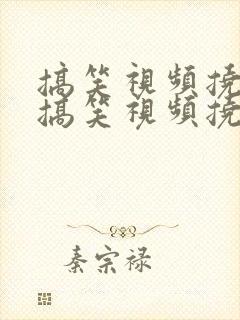 搞笑視頻撓
搞笑視頻撓
秦宗禄